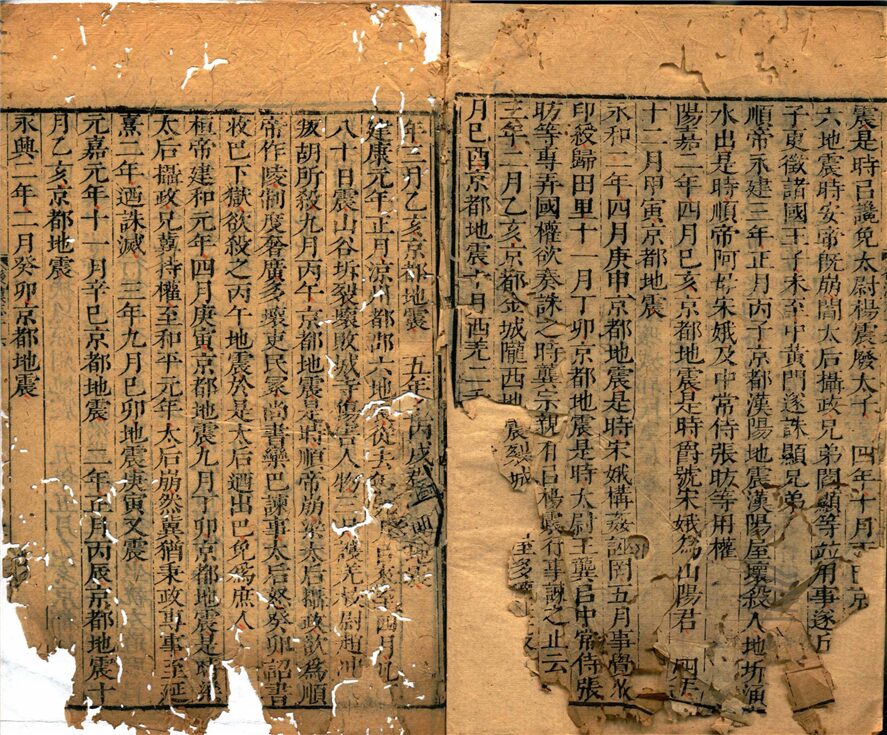 震是時㠯讒免太尉楊震廢太子　四年十月丁巳京
六地震時安帝旣崩閻太后攝政兄弟閻顯等竝用事遂斥
子更徵諸國王子未至中黃門遂誅顯兄弟
順帝永建三年正月丙子京都漢陽地震漢陽屋壞殺人地坼涌
水出是時順帝阿母宋娥及中常侍張昉等用權
陽嘉二年四月己亥京都地震是時爵號宋娥爲山陽君　四年
十二月甲寅京都地震
永和二年四月庚申京都地震是時宋娥構姦誣罔五月事覺收
印綬歸田里十一月丁卯京都地震是時太尉王龔㠯中常侍張
昉等專弄國權欲奏誅之時龔宗親有㠯楊震行事諫之止云
三年二月乙亥京都金城隴西地震裂城 至多
月己酉京都地震十月西羌二
年二月乙亥京都地震　五年 丙戌
建康元年正月涼州都郡六地 從去 四月凡
八十日震山谷坼裂壞敗城寺傷害人物三 護羌校尉趙沖
叛胡所殺九月丙午京都地震是時順帝崩梁太后攝政欲爲順
帝作陵制度奢廣多壞吏民冢尚書欒巴諫事太后怒癸卯詔書
收巴下獄欲殺之丙午地震於是太后迺出巴免爲庶人
桓帝建和元年四月庚寅京都地震九月丁卯京都地震是時梁
太后攝政兄冀持權至和平元年太后崩然冀猶秉政專事至延
熹二年迺誅滅　三年九月己卯地震庚寅又震
元嘉元年十一月辛巳京都地震　二年正月丙辰京都地震十
月乙亥京都地震
永興二年二月癸卯京都地震